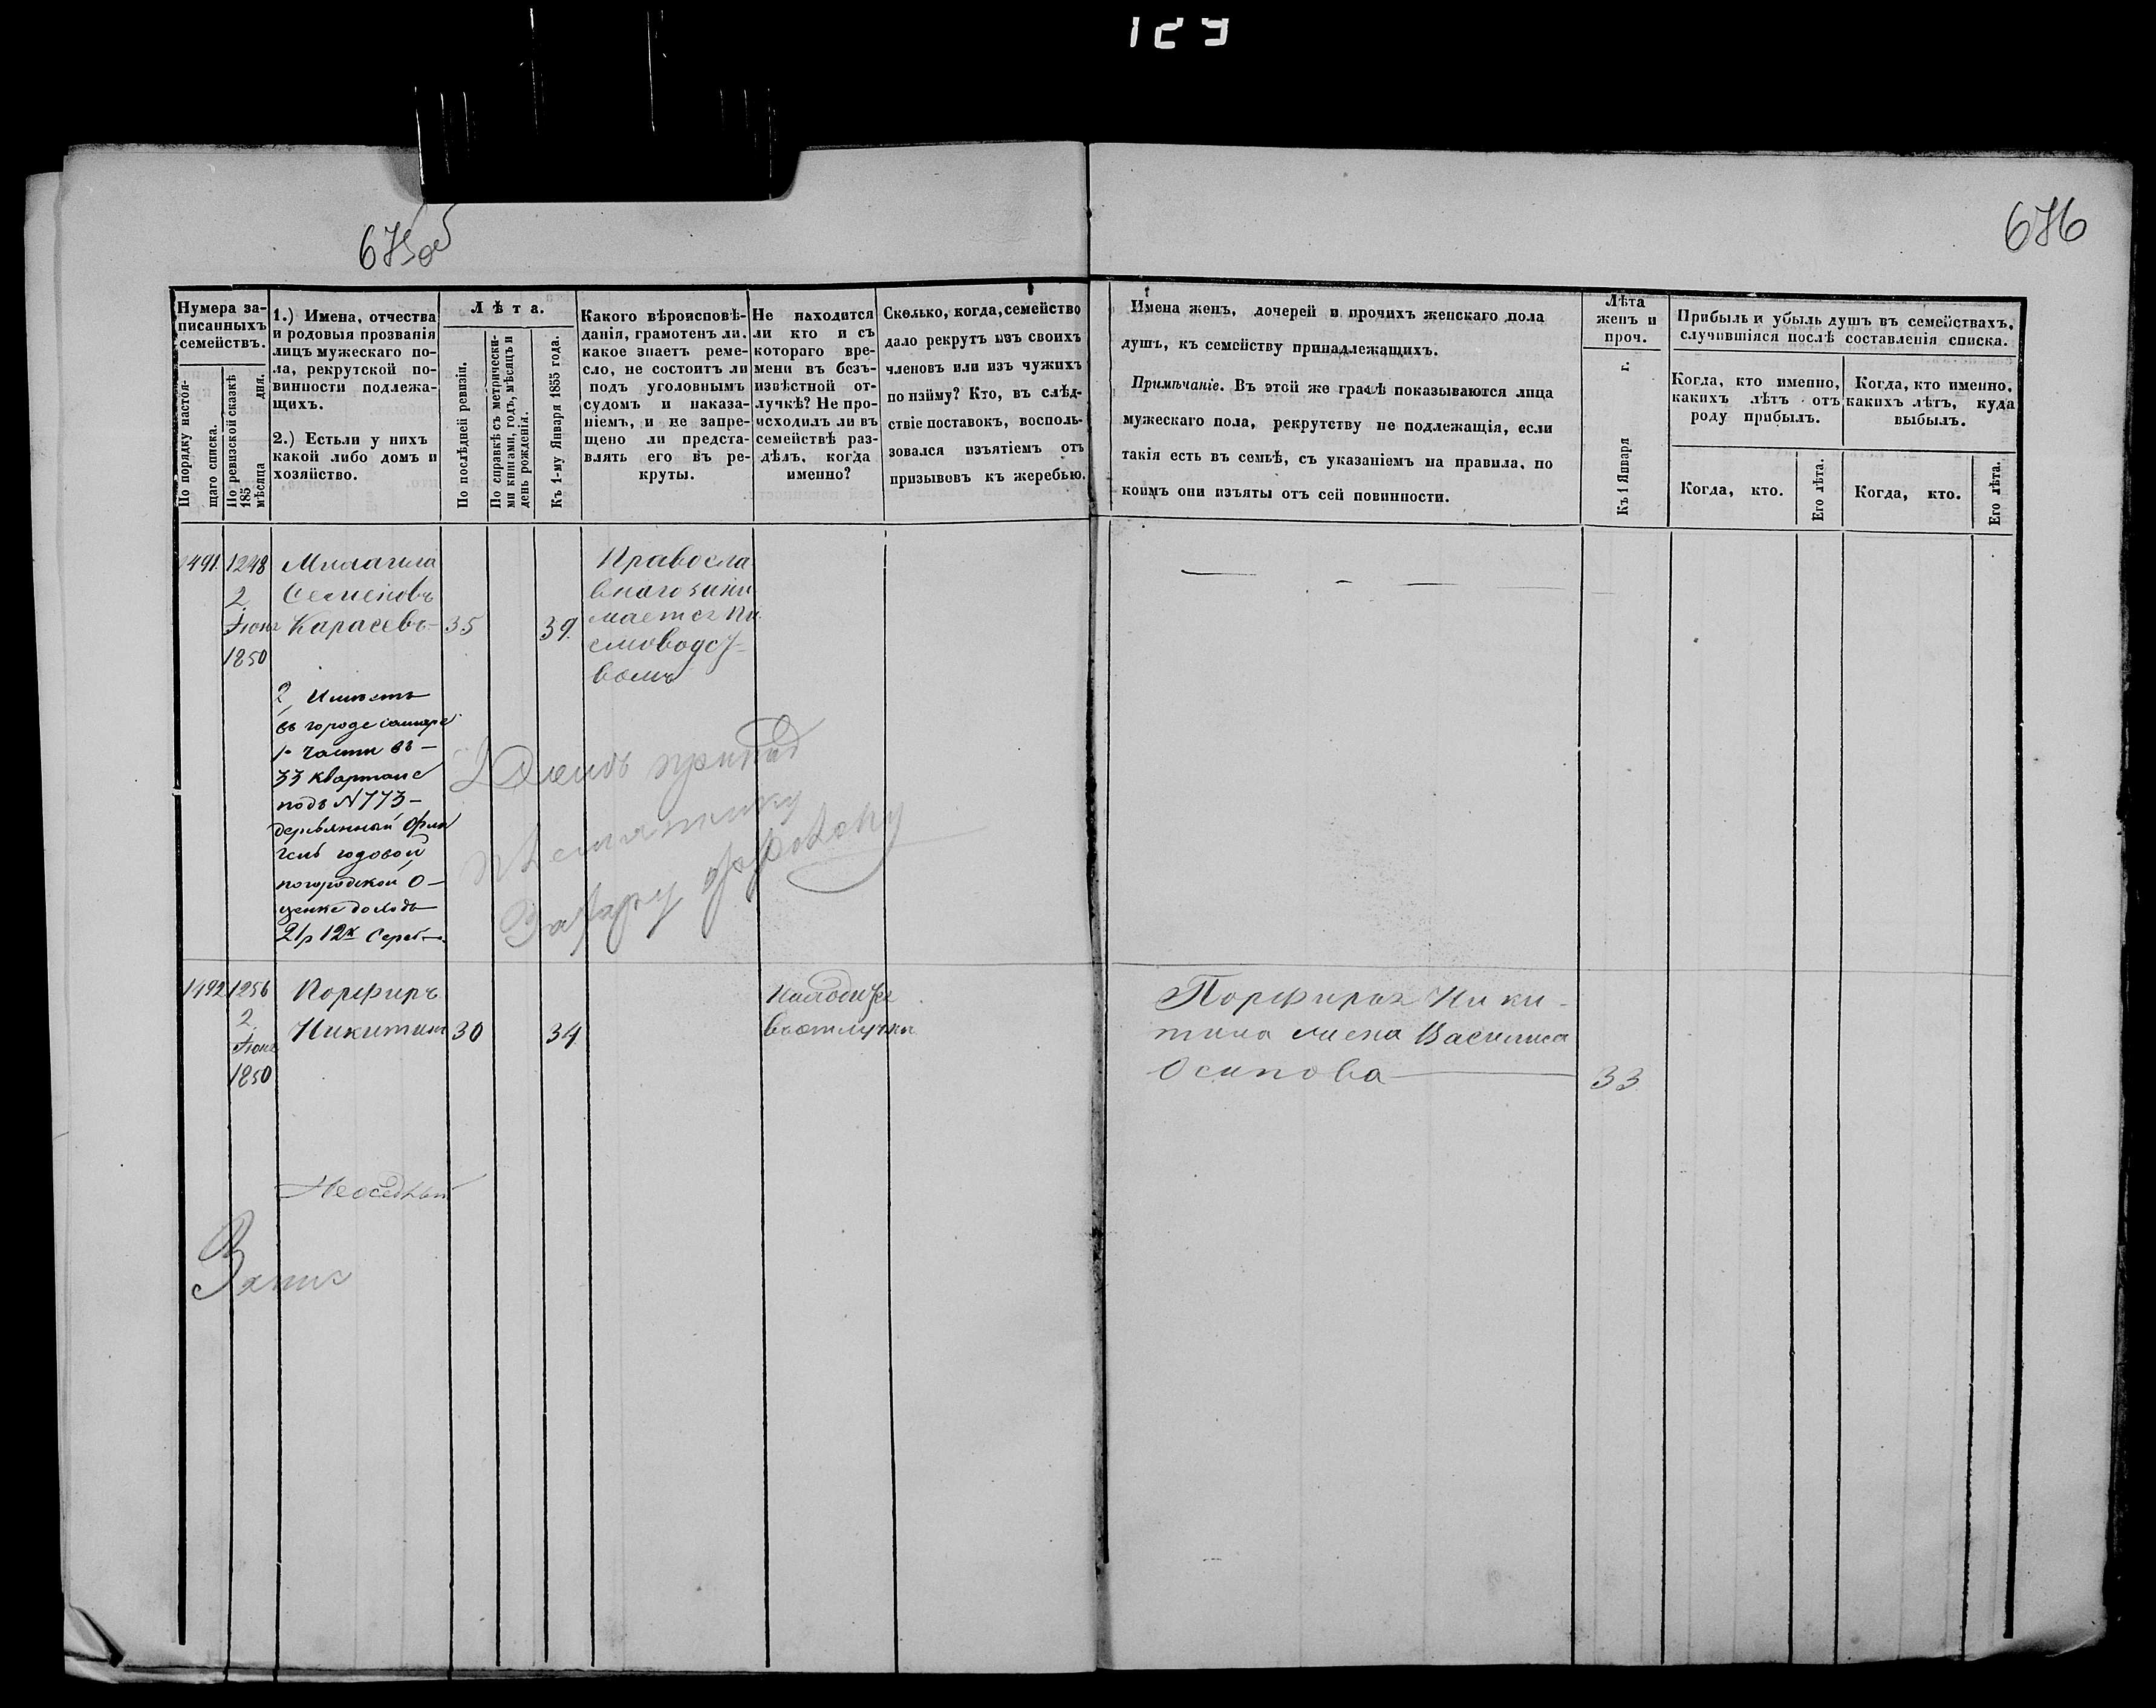 129
675об
676
Нумера за-
писанныхъ
семействъ.
По порядку настоя-
щаго списка.
По ревизской сказкѣ
185 мѣсяца дня.
1.) Имена, отчества
и родовыя прозванія
лицъ мужескаго по-
ла, рекрутской по-
винности подлежа-
щихъ.
2.) Естьли у нихъ
какой либо домъ и
хозяйство.
Лѣта.
По послѣдней ревизіи.
По справкѣ съ метрически-
ми книгами, годъ, мѣсяцъ и
день рожденія.
Къ 1-му Января 1855 года.
Какого вѣроисповѣ-
данія, грамотенъ ли.
какое знаетъ реме-
сло, не состоитъ ли
подъ уголовнымъ
судомъ и наказа-
ніемъ, и не запре-
щено ли предста-
влять его въ ре-
круты.
Не находится
ли кто и съ
котораго вре-
мени въ безъ-
извѣстной от-
лучкѣ? Не про-
исходилъ ли въ
семействѣ раз-
дѣлъ, когда
именно?
Сколько, когда, семейство
дало рекрутъ изъ своихъ
членовъ или изъ чужихъ
по найму? Кто, въ слѣд-
ствіе поставокъ, восполь-
зовался изъятіемъ отъ
призывовъ къ жеребью.
Имена женъ, дочерей и прочихъ женскаго пола
душъ, къ семейству принадлежащихъ.
Примѣчаніе. Въ этой же графѣ показываются лица
мужескаго пола, рекрутству не подлежащія, если
такія есть въ семьѣ, съ указаніемъ на правила, по
коимъ они изъяты отъ сей повинности.
Лѣта
женъ и
проч.
Къ 1 Января г.
Прибыль и убыль душъ въ семействахъ,
случившіяся послѣ составленія списка.
Когда, кто именно,
какихъ лѣтъ отъ
роду прибылъ.
Когда, кто именно,
какихъ лѣтъ, куда
выбылъ.
Когда, кто.
Его лѣта.
Когда, кто.
Его лѣта.
1491. 1248
2
Іюня
1850
Михаила
Семеновъ
Карасевъ 35 39.
Правосла
внаго зани
мается пи
смоводст
вомъ
2, Имѣетъ
въ городе самаре
1й части въ
33 квартале
подъ N 773
деревянный фли
гель годовой
погородской о
ценке доходъ
21р 12к Сереб
1492 1256
2.
Іюня
1850
Порфиръ
Никитинъ 30 34
Находится
въ отлучки
Порфирья Ники-
тина жена Василиса
Осипова 33
Неоседлый